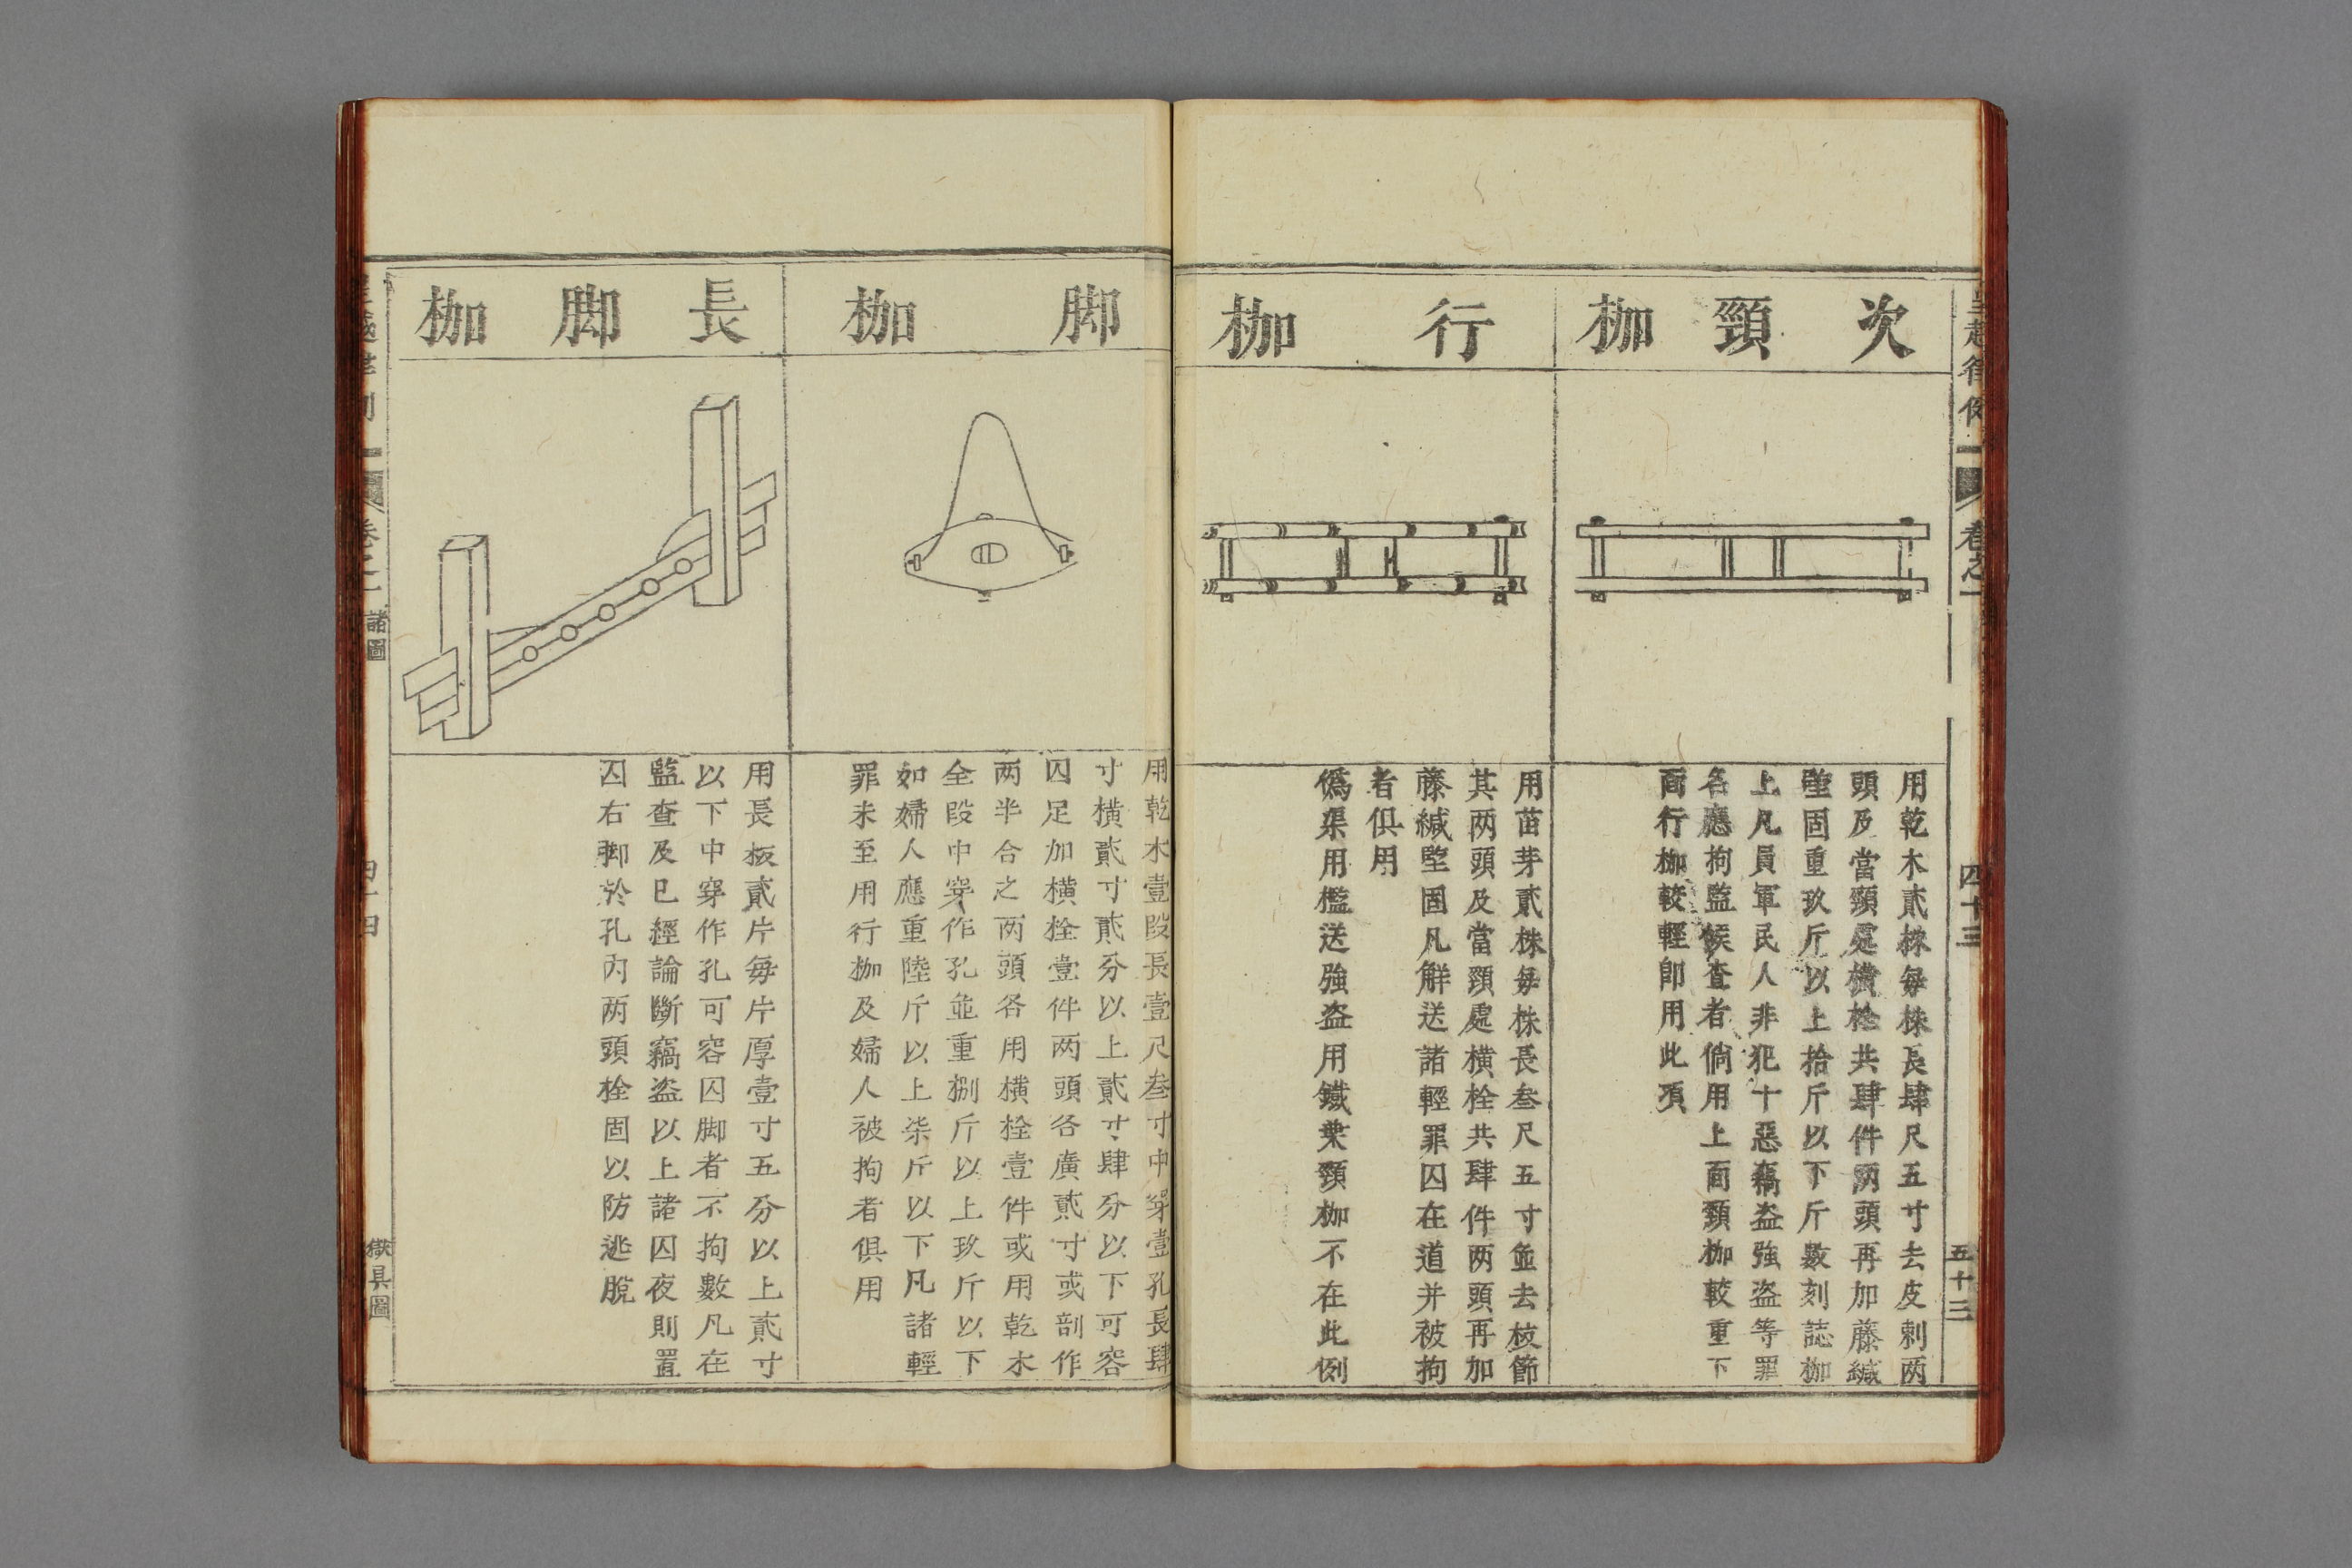 皇越律例一
卷之一
四十三
五十三
次頸枷
用乾木貳株每株長肆尺五寸去皮剌两
頭及當頸處横栓共肆件两頭再加藤緘
堅固重玖斤以上拾斤以下斤數刻誌枷
上凡員軍民人非犯十惡竊盗強盗等罪
各應拘監候查者倘用上面頸枷較重下
面行枷較輕卽用此項
行枷
用苗芽貳株每株長叁尺五寸並去枝節
其两頭及當頸處横栓共肆件两頭再加
藤緘堅固凡觧送諸輕罪囚在道并被拘
者俱用
僞渠用檻送強盗用鐵葉頸枷不在此例
脚枷
用乾木壹段長壹尺叁寸中穿壹孔長肆
寸横貳寸貳分以上貳寸肆分以下可容
囚足加横栓壹件两頭各廣貳寸或剖作
两半合之两頭各用横栓壹件或用乾木
全段中穿作孔並重捌斤以上玖斤以下
如婦人應重陸斤以上柒斤以下凡諸輕
罪未至用行枷及婦人被拘者俱用
長脚枷
用長板貳片每片厚壹寸五分以上貳寸
以下中穿作孔可容囚脚者不拘數凡在
監查及已經論斷竊盗以上諸囚夜則置
囚右脚於孔内两頭栓固以防逃脫
皇越律例一
卷之一
諸圖
四十四
獄具圖